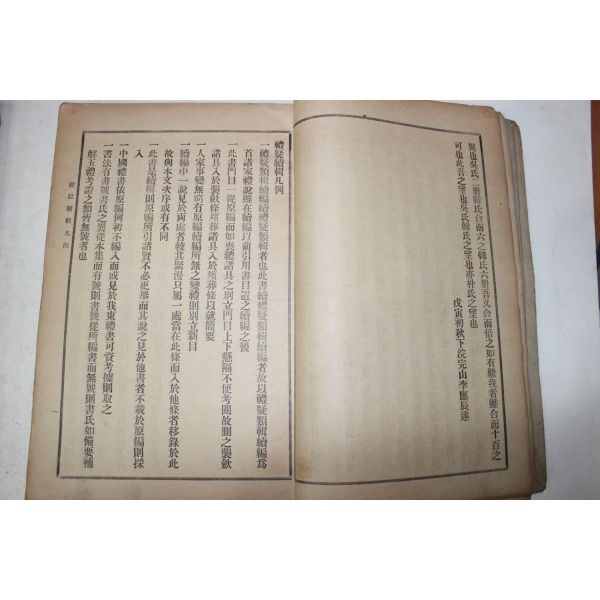 異也吳氏二冊韓氏合而六之韓氏六冊吾又合而倍之如有繼我者雖合而十百之
可也此吾之望也吳氏韓氏之望也亦朴氏之望也
戊寅初秋下浣完山李應辰述
禮疑續輯凡例
一禮疑類輯續編續禮疑類輯者也此書續禮疑類輯續編者故以禮疑類輯續編爲
首諸家禮說雖在續編以前引用書目置之續編之後
一此書門目一從原編而如喪禮諸具之別立門目上下懸隔不便考閱故刪之襲歛
諸具入於襲歛條殯葬諸具入於殯葬條以就簡要
一人家事變無窮有原編續編所無之變禮則別立新目
一續編中一說見於兩處者較其緊漫只屬一處當在此條而入於他條者移錄於此
故與本文次序或有不同
一此書是續輯則原編所引諸賢不必更舉而其說之見於他書者不載於原編則採
入
一中國禮書依原編例初不編入而或見於我東禮書可資考據則取之
一書法有書號書氏之異從本集而有號則書號從所編書而無號則書氏如備要補
解五禮考證之類皆無號者也
禮疑續輯凡例
一